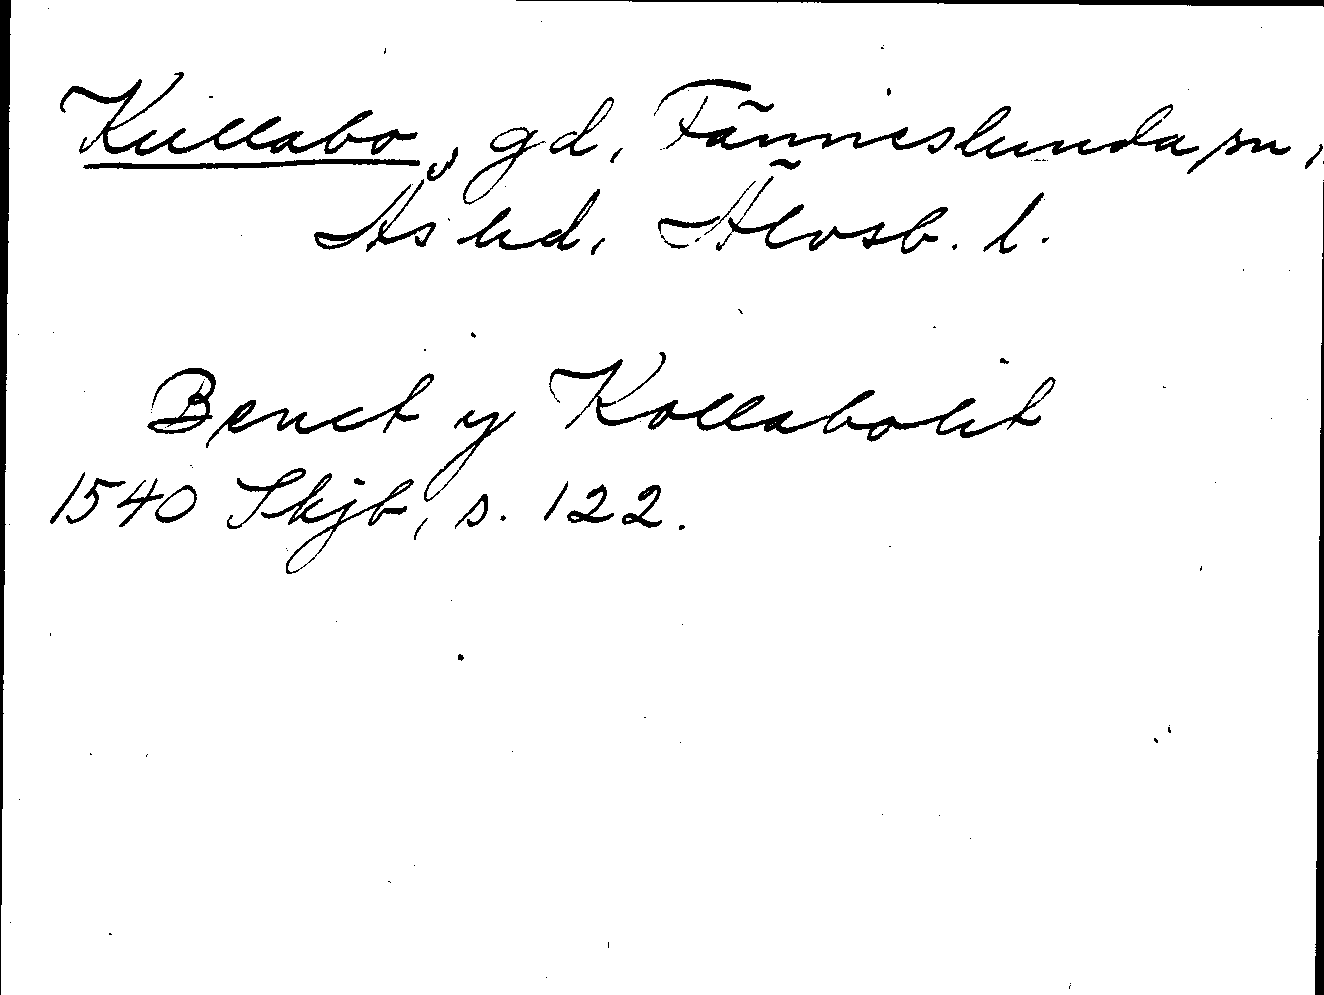 Kullabo, gd, Fänneslunda sn,
Ås hd, Älvsb. l.
Benct y Kollabolit
1540 Skjb, s. 122.